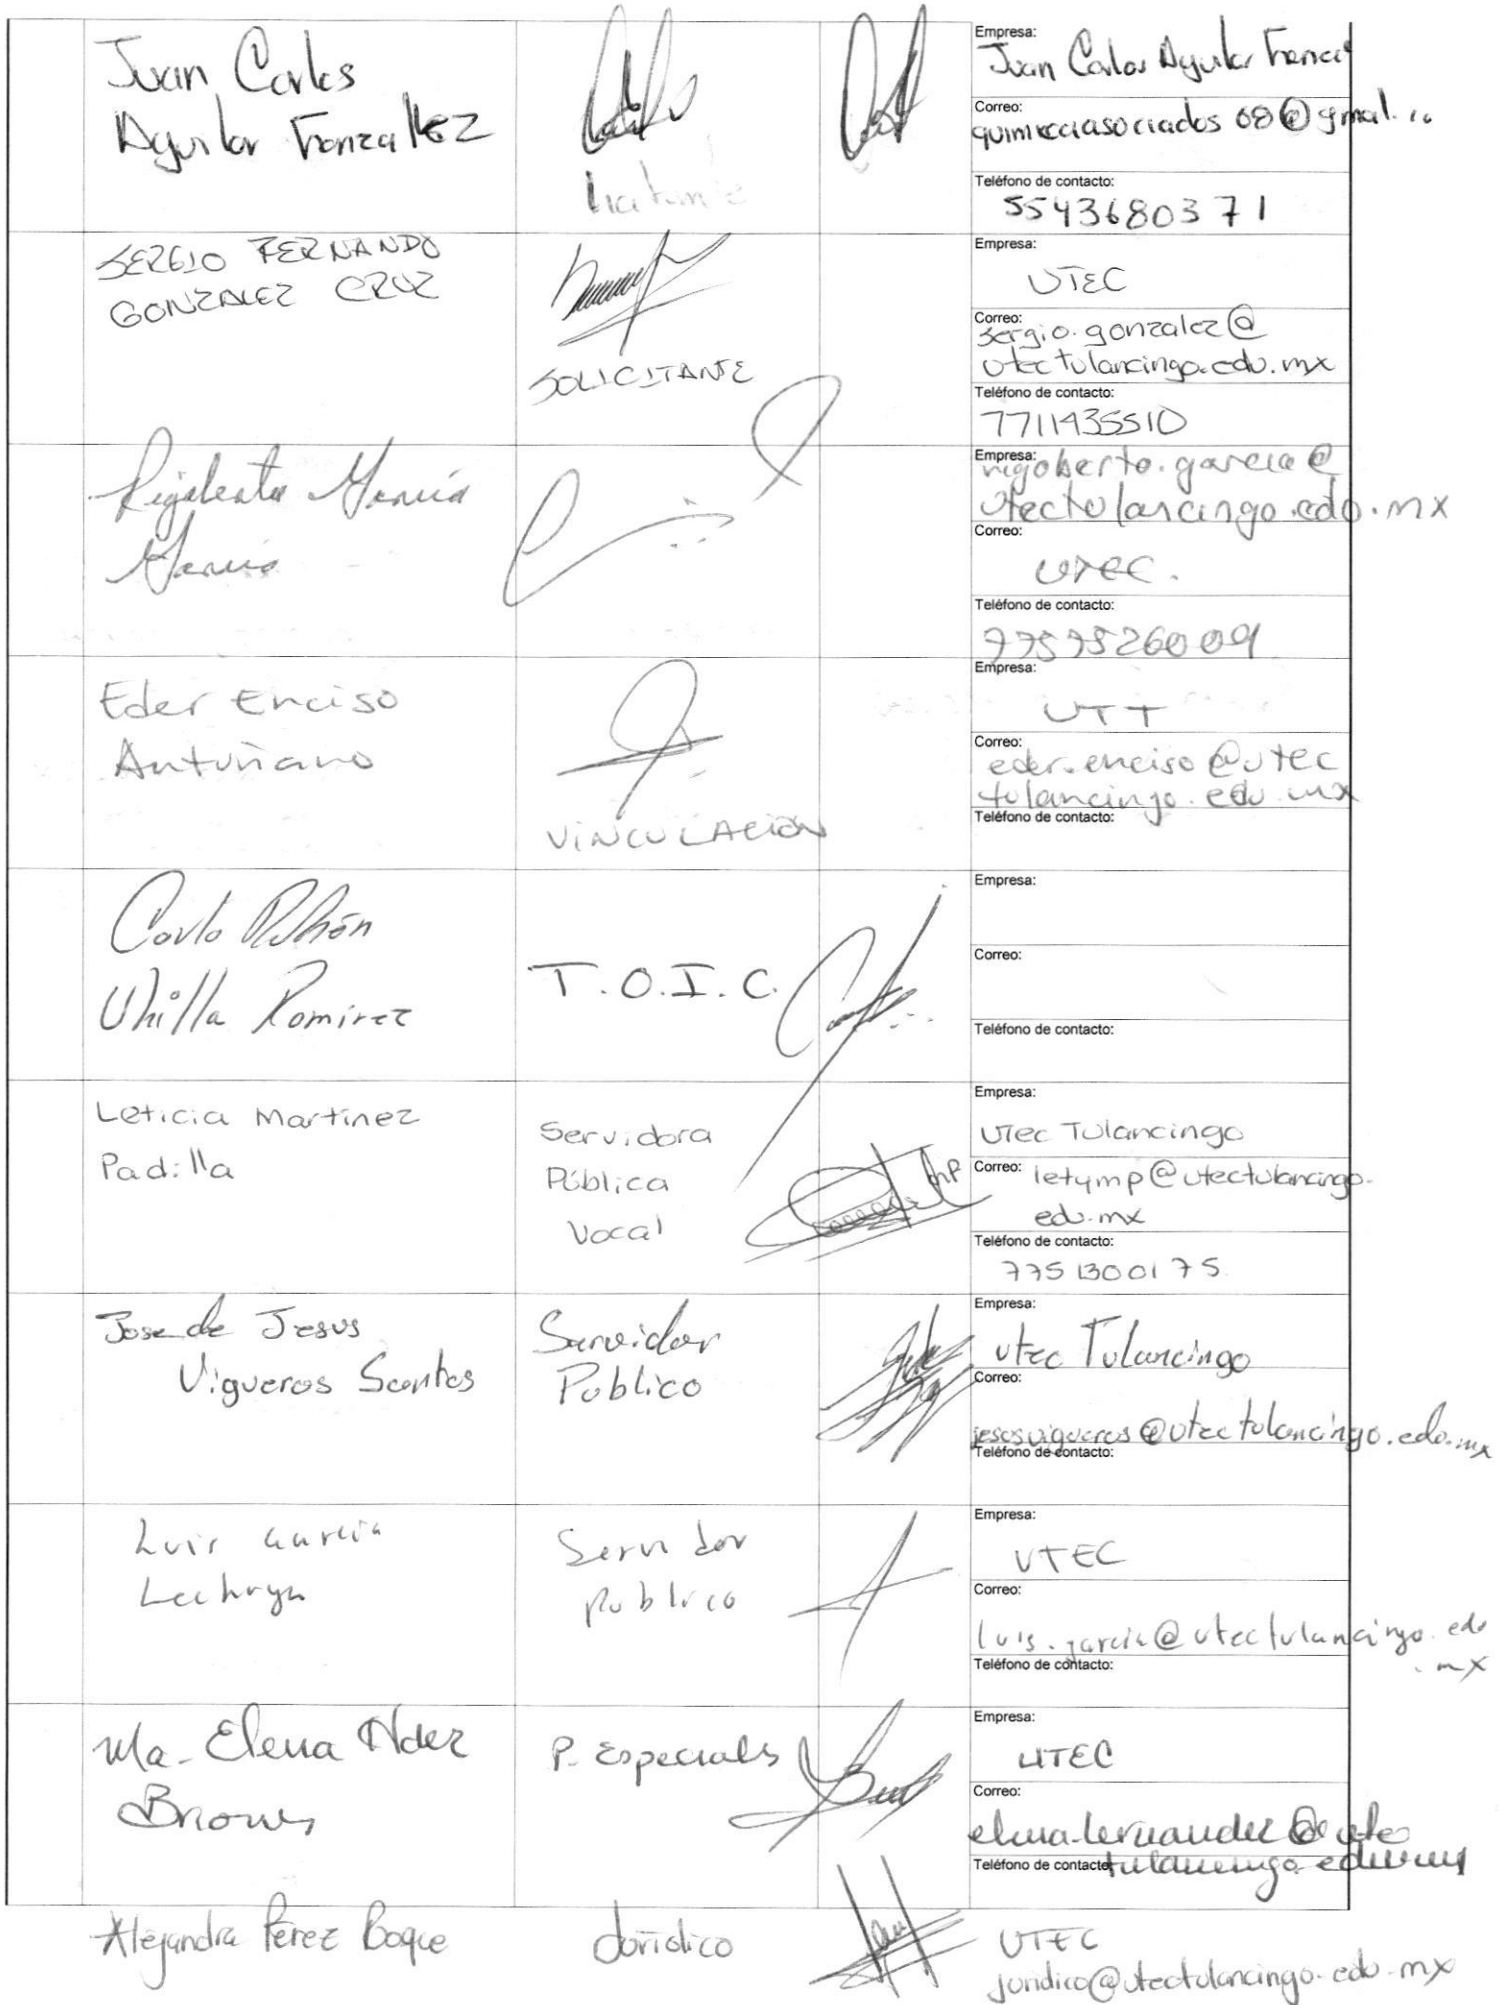 Juan Carlos
Aguilar
Empresa:
Juan Carlos Aguilar
Correo:
Teléfono de contacto:
5543680371
SERGIO FERNANDO
GONZALEZ CRUZ
SOLICITANTE
Empresa:
UTEC
Correo:
sergio.gonzalez@
utectulancingo.edu.mx
Teléfono de contacto:
7711435510
García
García
Empresa:
rigoberto.garcia@
utectulancingo.edu.mx
Correo:
UTEC.
Teléfono de contacto:
Eder Enciso
Antuñano
VINCULACIÓN
Empresa:
UTT
Correo:
eder.enciso@utec
tulancingo.edu.mx
Teléfono de contacto:
Carlo
Ramirez
T.O.I.C.
Empresa:
Correo:
Teléfono de contacto:
Leticia Martinez
Padilla
Servidora
Pública
Vocal
Empresa:
UTec Tulancingo
Correo: letymp@utectulancingo.
edu.mx
Teléfono de contacto:
7751300175
Jose de Jesus
Vigueras Santos
Servidor
Publico
Empresa:
Utec Tulancingo
Correo:
jesusvigueras@utectulancingo.edu.mx
Teléfono de contacto:
Luis García
Servidor
Publico
Empresa:
UTEC
Correo:
luis.garcia@utectulancingo.edu
.mx
Teléfono de contacto:
Ma. Elena Hdez
P. Especiales
Empresa:
UTEC
Correo:
elena.hernandez@utec
tulancingo.edu.mx
Teléfono de contacto:
Alejandra Pérez Roque
Jurídico
UTEC
juridico@utectulancingo.edu.mx